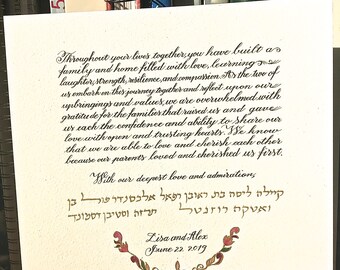 Throughout your lives together, you have built a
family and home filled with love, learning
laughter, strength, resilience, and compassion. As the two of
us embark on this journey together and reflect upon our
upbringings and values, we are overwhelmed with
gratitude for the families that raised us and gave
us each the confidence and ability to share our
love with open and trusting hearts. We know
that we are able to love and cherish each other
because our parents loved and cherished us first.
With our deepest love and admiration,
קיילה ליסה בת ראובן רפאל אלכסנדר בן
רוזנטל וסטיבן דסמונד
Lisa and Alex
June 22, 2019